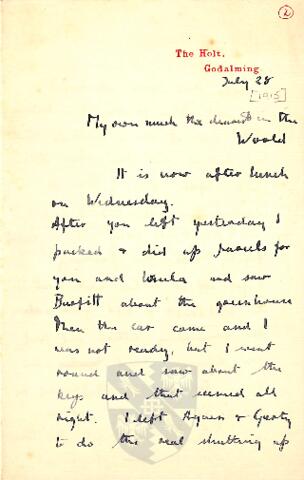 2
The Holt.
Godalming
July 28
[1915]
My own much the dearest in the
World
It is now after lunch
on Wednesday.
After you left yesterday I
packed & did up parcels for
you and and saw
about the greenhouse
Then the car came and I
was not ready, but I went
round and saw about the
keys and that seemed all
right. I left Agnes & Gerty
to do the real shutting up